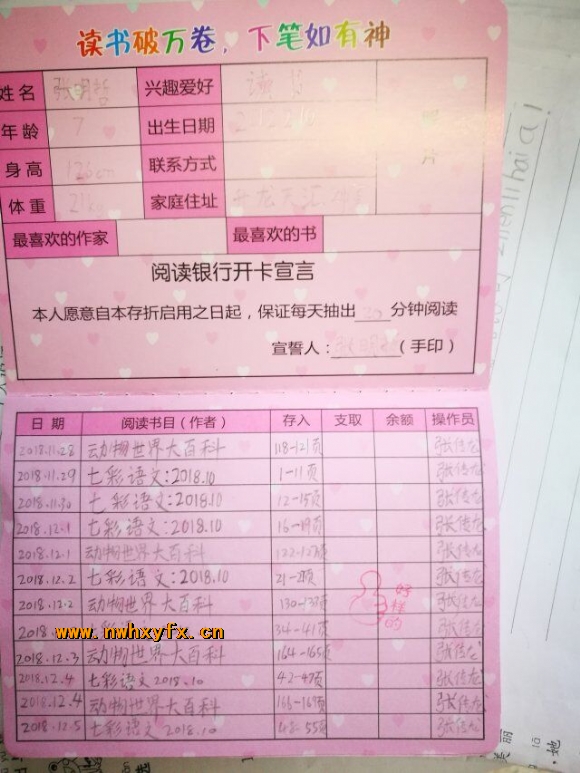 读书破万卷，下笔如有神
姓名 张明哲 兴趣爱好 读书
年龄 7 出生日期
身高 126cm 联系方式 片
体重 21kg 家庭住址
最喜欢的作家 最喜欢的书
阅读银行开卡宣言
本人愿意自本存折启用之日起，保证每天抽出 30 分钟阅读
宣誓人： （手印）
日期 阅读书目（作者） 存入 支取 余额 操作员
2018.11.28 动物世界大百科 118-121页 张传龙
2018.11.29 七彩语文:2018.10 1-11页 张传龙
2018.11.30 七彩语文:2018.10 12-15页 张传龙
2018.12.1 七彩语文:2018.10 张传龙
2018.12.1 动物世界大百科 122-127页 张传龙
2018.12.2 七彩语文:2018.10 好样的 张传龙
2018.12.2 动物世界大百科 130-133页 张传龙
www.nwhxyfx.cn 34-41页 张传龙
2018.12.3 动物世界大百科 164-165页 张传龙
2018.12.4 七彩语文2018.10 42-47页 张传龙
2018.12.4 动物世界大百科 166-169页 张传龙
2018.12.5 七彩语文2018.10 48-55页 张传龙